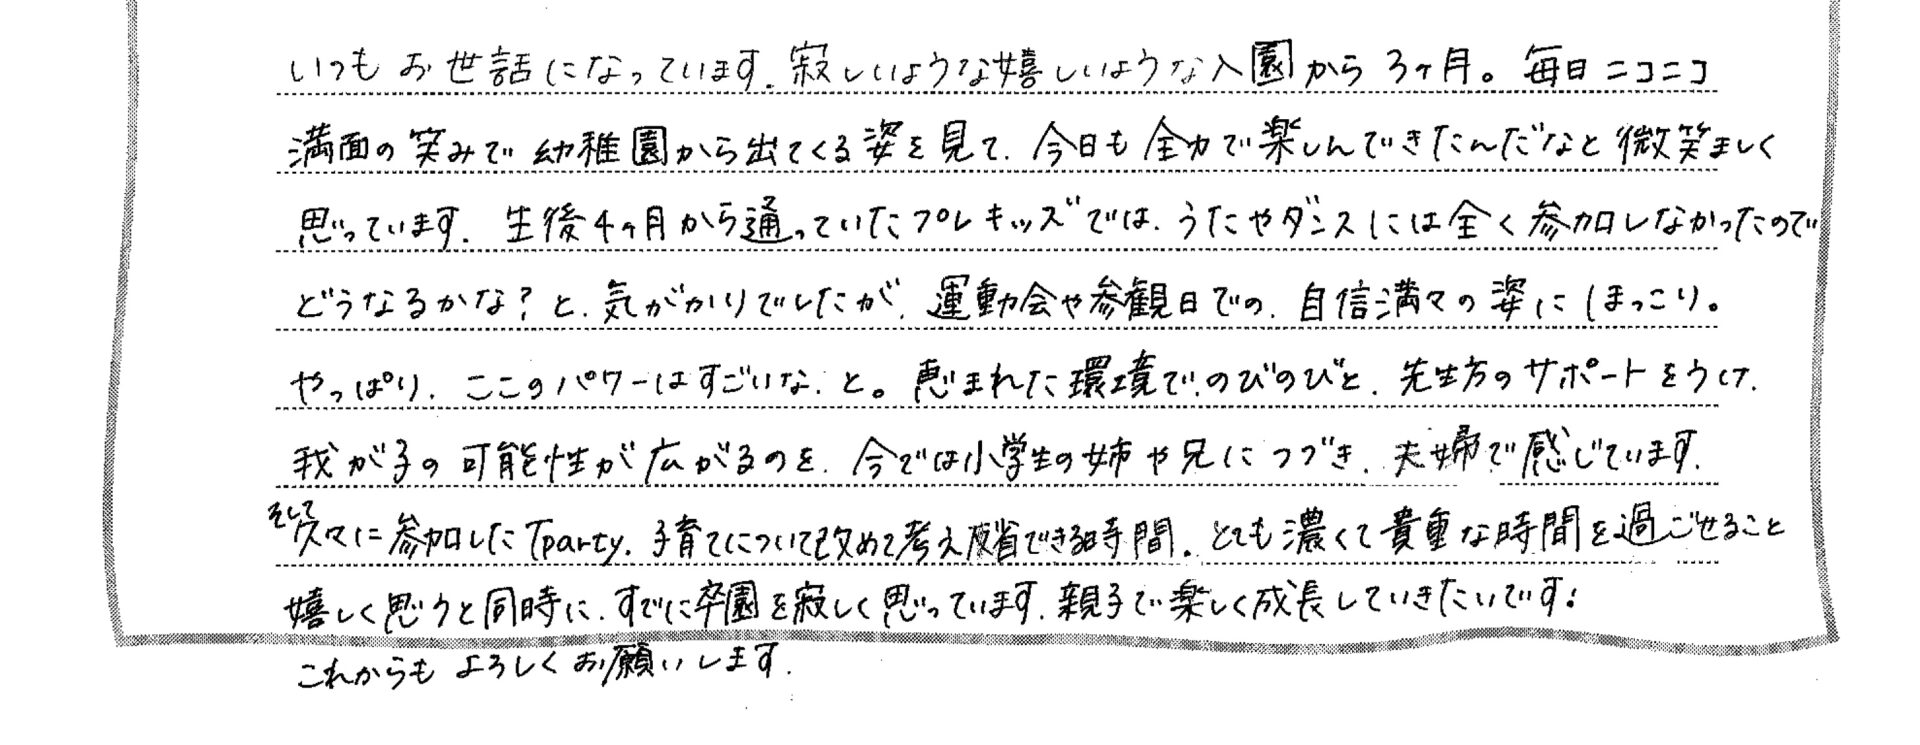 いつもお世話になっています。寂しいような嬉しいような入園から3ヶ月。毎日ニコニコ
満面の笑みで幼稚園から出てくる姿を見て、今日も全力で楽しんできたんだなと微笑ましく
思っています。生後4ヶ月から通っていたプレキッズでは、うたやダンスには全く参加しなかったので
どうなるかな?と、気がかりでしたが、運動会や参観日での、自信満々の姿にほっこり。
やっぱり、ここのパワーはすごいな、と。恵まれた環境で、のびのびと、先生方のサポートをうけ、
我が子の可能性が広がるのを、今では小学生の姉や兄につづき、夫婦で感じています。
そして久々に参加したTparty、子育てについて改めて考え反省できる時間。とても濃くて貴重な時間を過ごせること
嬉しく思うと同時に、すでに卒園を寂しく思っています。親子で楽しく成長していきたいです!
これからもよろしくお願いします。